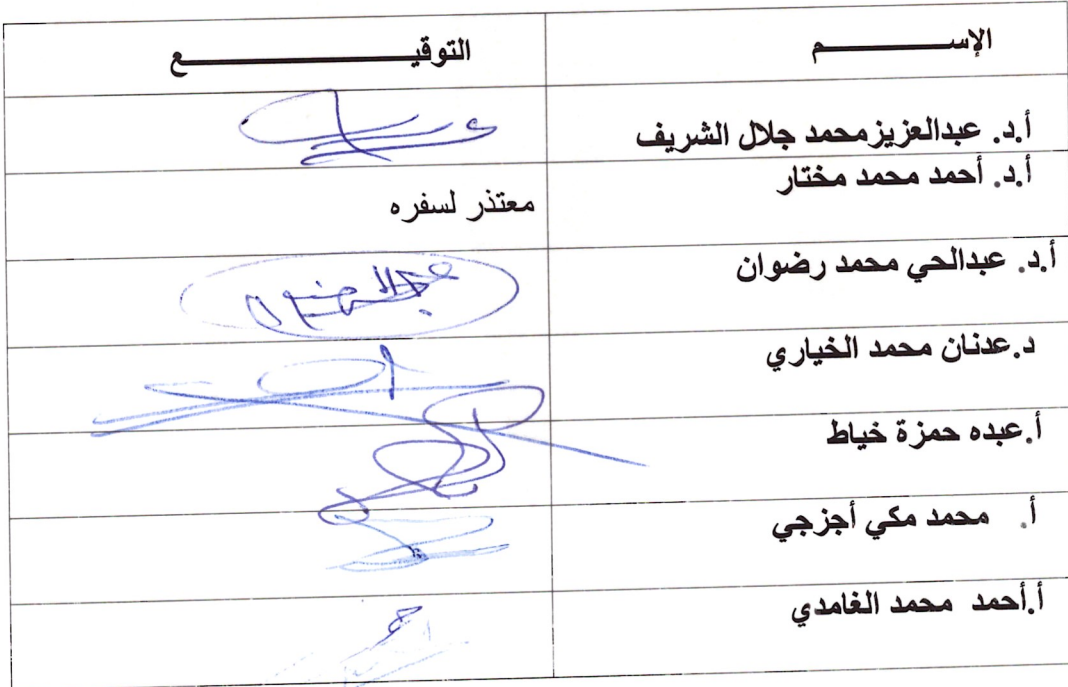 الإســـــــــم التوقيـــــــــــــــع
أ.د. عبدالعزيزمحمد جلال الشريف
أ.د. أحمد محمد مختار معتذر لسفره
أ.د. عبدالحي محمد رضوان
د.عدنان محمد الخياري
أ.عبده حمزة خياط
أ. محمد مكي أجزجي
أ.أحمد محمد الغامدي